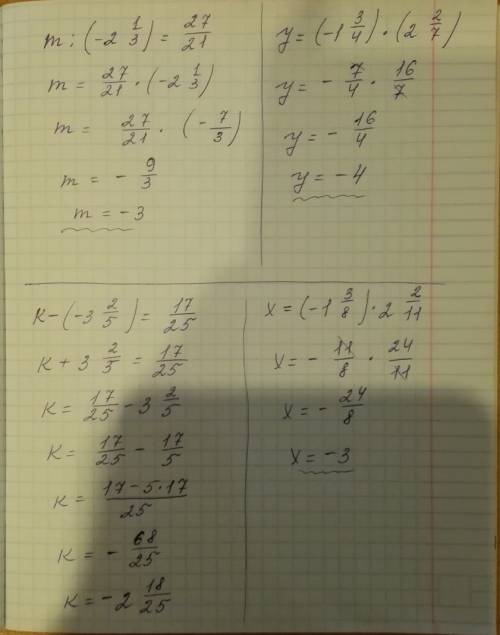 m : (-2 1/3) = 27/21
m = 27/21 · (-2 1/3)
m = 27/21 · (-7/3)
m = - 9/3
m = -3
y = (-1 3/4) · (2 2/7)
y = - 7/4 · 16/7
y = - 16/4
y = -4
к - (-3 2/5) = 17/25
к + 3 2/5 = 17/25
к = 17/25 - 3 2/5
к = 17/25 - 17/5
к = (17 - 5·17)/25
к = - 68/25
к = -2 18/25
x = (-1 3/8) · 2 2/11
x = - 11/8 · 24/11
x = - 24/8
x = -3